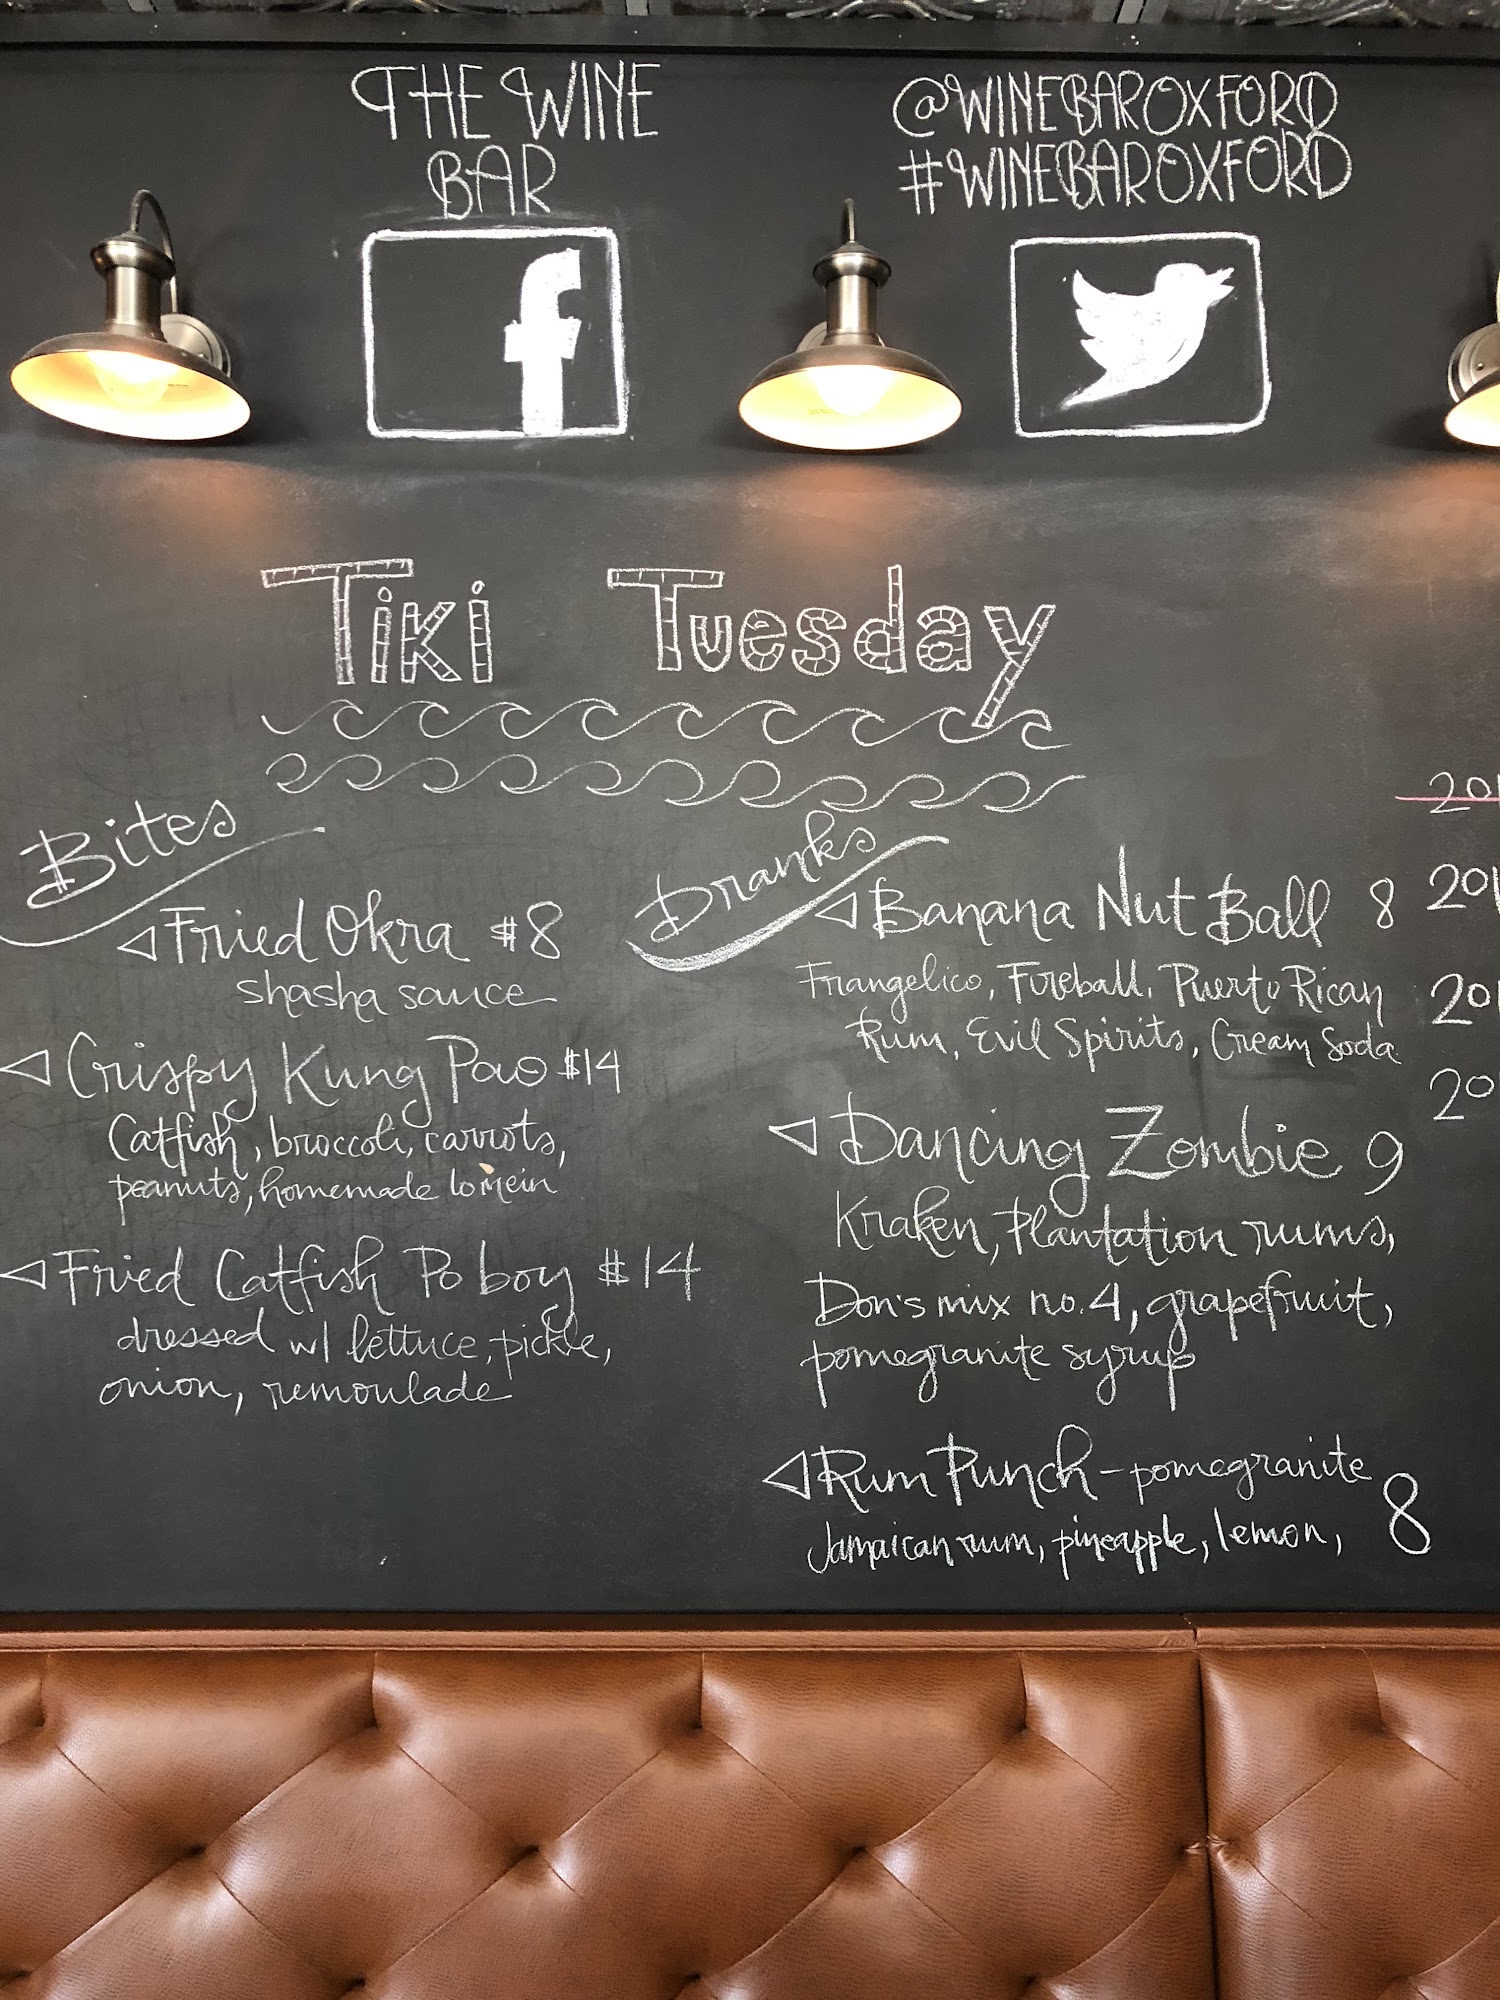 THE WINE
BAR
@WINEBAROXFORD
#WINEBAROXFORD
f
Tiki Tuesday
Bites
Fried Okra $8
shasha sauce
Crispy Kung Pao $14
Catfish, broccoli, carrots,
peanuts, homemade lo mein
Fried Catfish Po boy $14
dressed w/ lettuce, pickle,
onion, remoulade
Dranks
Banana Nut Ball 8
Frangelico, Fireball, Puerto Rican
Rum, Evil Spirits, Cream Soda
Dancing Zombie 9
Kraken, Plantation rums,
Don's mix no. 4, grapefruit,
pomegranite syrup
Rum Punch - pomegranite
Jamaican rum, pineapple, lemon, 8
201
201
201
20